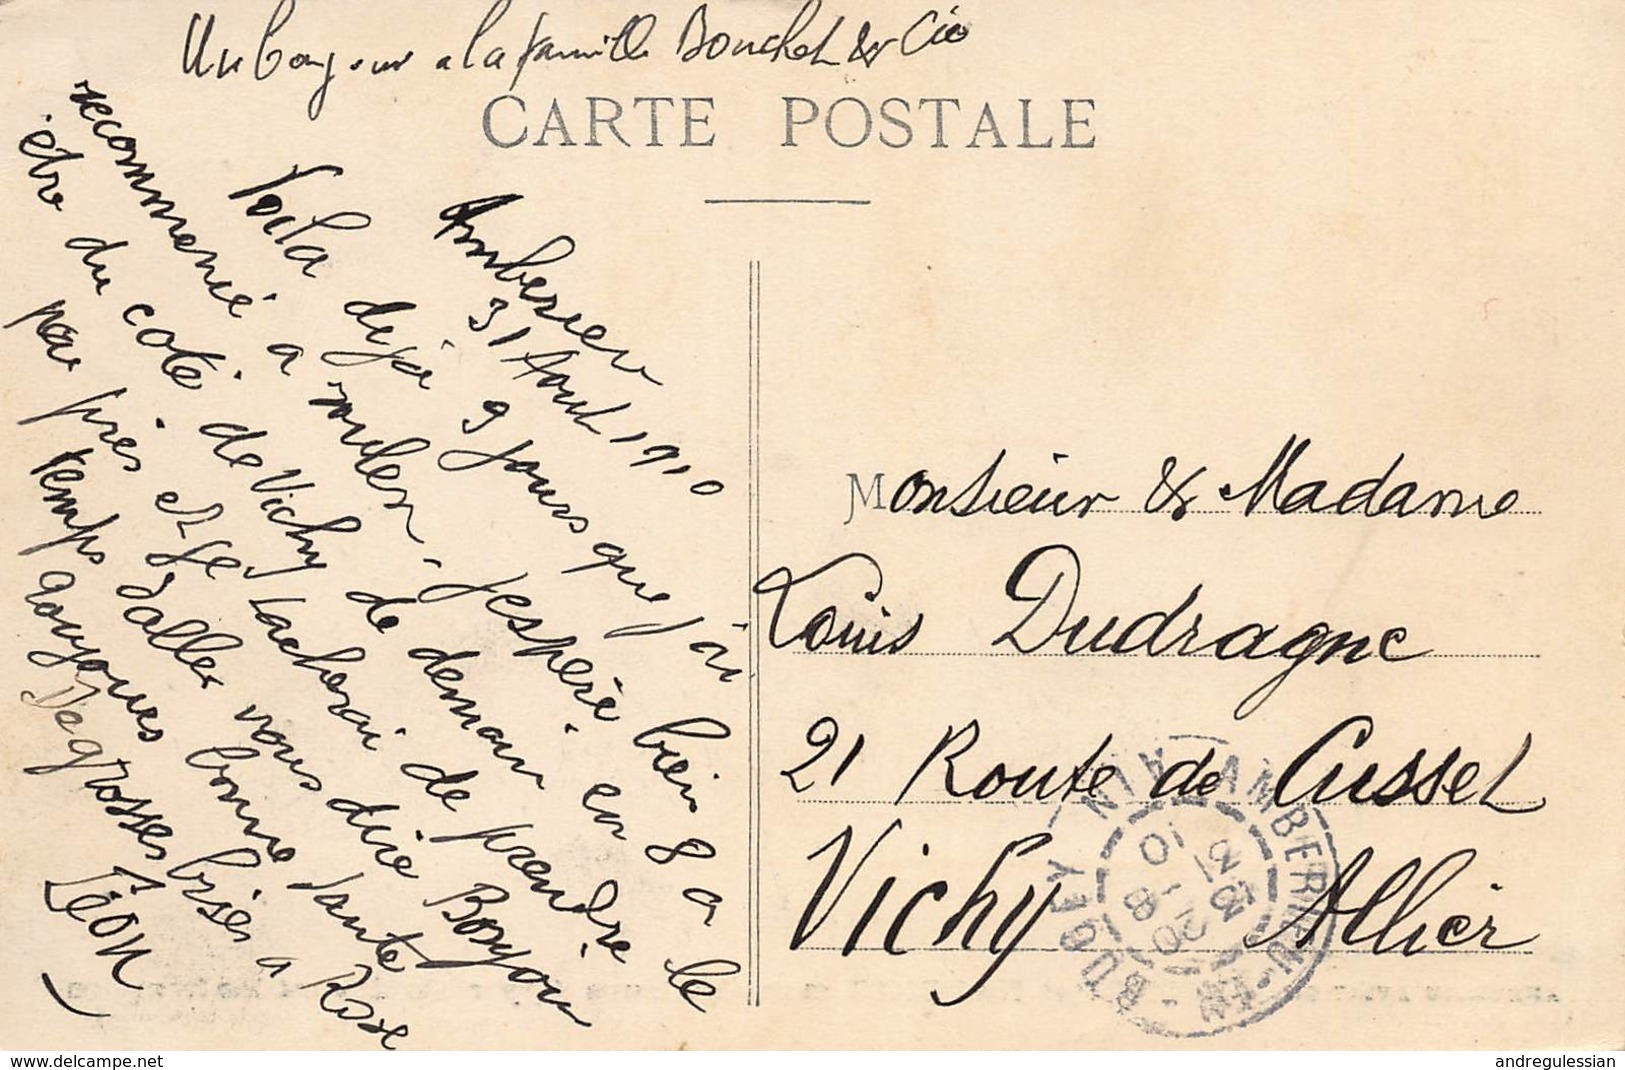 Un bonjour a la famille Bouchet & Cie
CARTE POSTALE
Amberieu
31 Aout 1910
Voila déja 9 jours que j'ai
recommencé a rouler. J'espère bien 8 a le
être du coté de Vichy de demain en
par près et je tacherai de prendre
temps d'aller vous dire Bonjour
aoujours bonne santé
De grosses bises a Rose
Léon
Monsieur & Madame
Louis Dudragne
21 Route de Cusset
Vichy Allier
AMBERIEU-EN-BUGEY AIN
31-8 10
www.delcampe.net
andregulessian